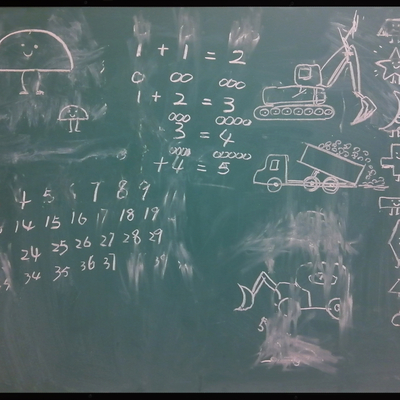 1 + 1 = 2
1 + 2 = 3
3 = 4
+ 4 = 5
4 5 7 8 9
14 15 16 17 18 19
24 25 26 27 28 29
34 35 36 37